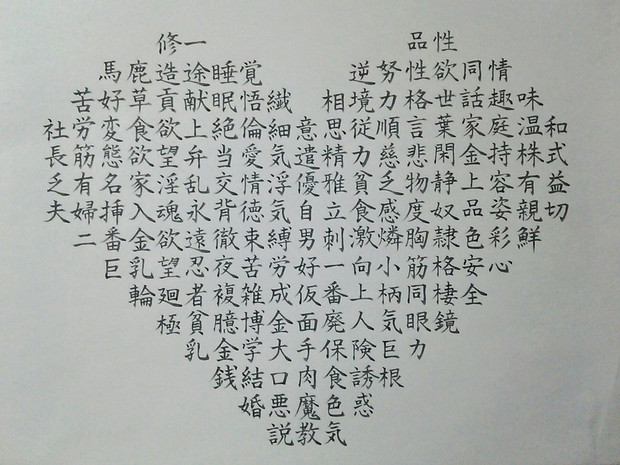 修一 品性
馬鹿造途睡覚 逆努性欲同情
苦好草貢献眠悟繊 相境力格世話趣味
社労変食欲上絶倫細意思従順言葉家庭温和
長筋態欲望弁当愛気遣精力慈悲閑金持株式
乏有名家淫乱交情浮優雅貧乏物静上容有益
夫婦挿入魂永背徳気自立食感度奴品姿親切
二番金欲遠徹束縛男刺激憐胸隷色彩鮮
巨乳望忍夜苦労好一向小筋格安心
輪廻者複雑成仮番上柄同棲全
極貧臆博金面廃人気眼鏡
乳金学大手保険巨力
銭結口肉食誘根
婚悪魔色惑
説教気